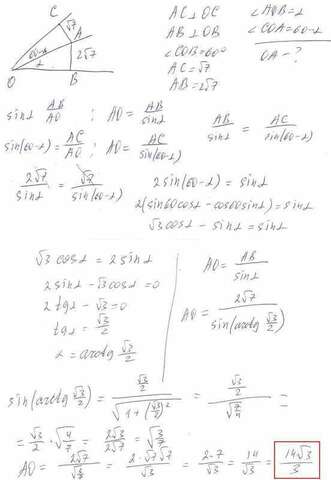 C
√7
A
60-α
2√7
α
O
B
AC ⊥ OC
AB ⊥ OB
∠COB = 60°
AC = √7
AB = 2√7
∠AOB = α
∠COA = 60-α
OA - ?
sinα = AB/AO ; AO = AB/sinα
sin(60-α) = AC/AO ; AO = AC/sin(60-α)
AB/sinα = AC/sin(60-α)
2√7/sinα = √7/sin(60-α)
2sin(60-α) = sinα
2(sin60cosα - cos60sinα) = sinα
√3cosα - sinα = sinα
√3 cosα = 2sinα
2sinα - √3cosα = 0
2tgα - √3 = 0
tgα = √3/2
α = arctg √3/2
AO = AB/sinα
AO = 2√7/sin(arctg √3/2)
sin(arctg √3/2) = (√3/2)/√(1+(√3/2)²) = (√3/2)/√(7/4) =
= √3/2 · √(4/7) = 2√3/2√7 = √(3/7)
AO = 2√7/√(3/7) = 2·√7√7/√3 = 2·7/√3 = 14/√3 = 14√3/3